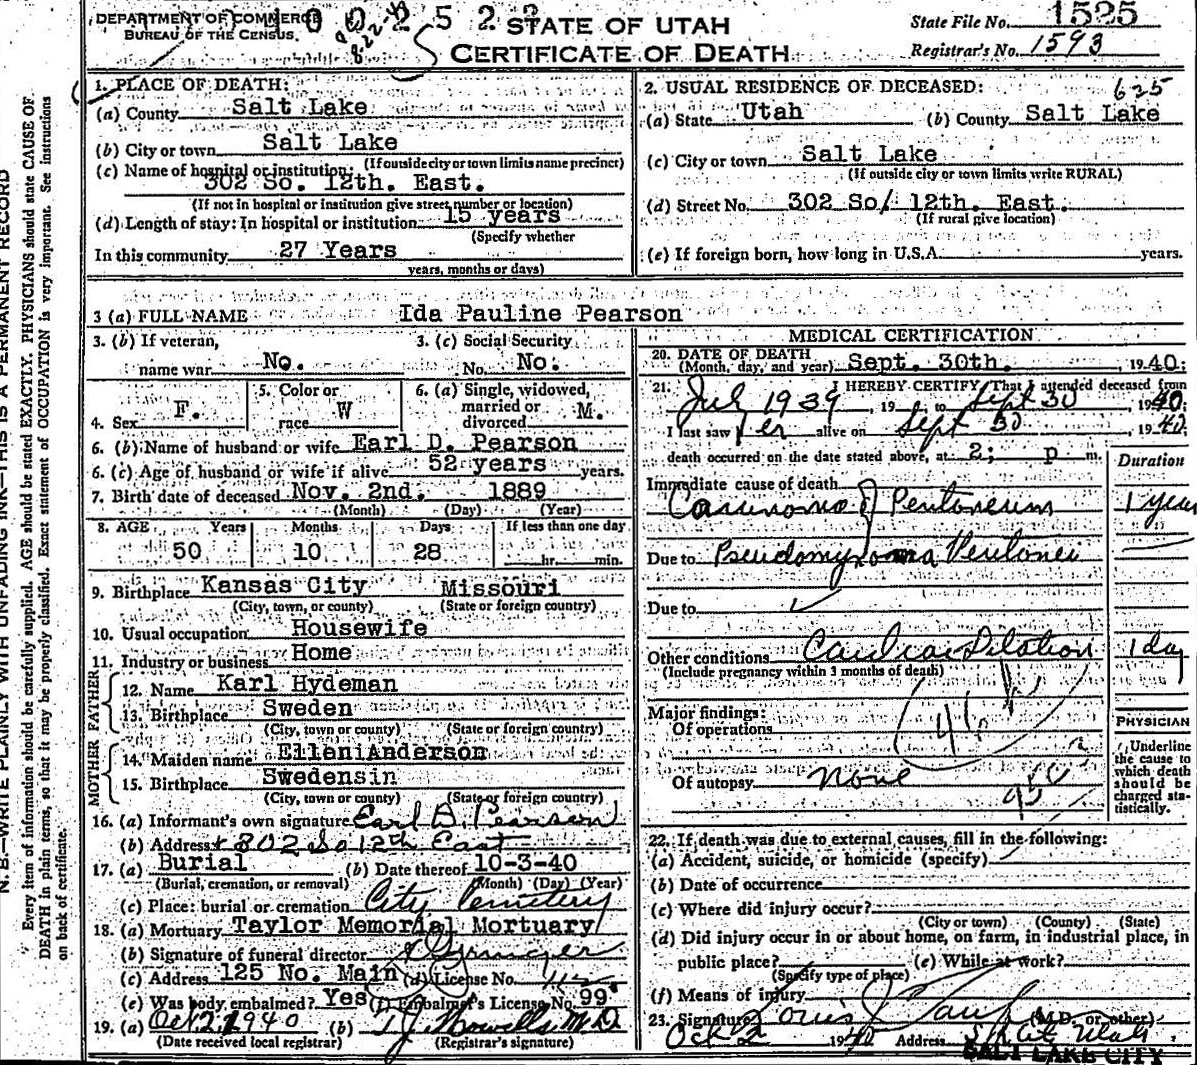 DEPARTMENT OF COMMERCE
BUREAU OF THE CENSUS.
STATE OF UTAH
CERTIFICATE OF DEATH
State File No. 1525
Registrar's No. 1593
1. PLACE OF DEATH:
(a) County Salt Lake
(b) City or town Salt Lake
(If outside city or town limits name precinct)
(c) Name of hospital or institution:
302 So. 12th. East.
(If not in hospital or institution give street number or location)
(d) Length of stay: In hospital or institution 15 years
(Specify whether
In this community 27 Years
years, months or days)
2. USUAL RESIDENCE OF DECEASED: 625
(a) State Utah (b) County Salt Lake
(c) City or town Salt Lake
(If outside city or town limits write RURAL)
(d) Street No. 302 So/ 12th. East.
(If rural give location)
(e) If foreign born, how long in U.S.A. years.
3 (a) FULL NAME Ida Pauline Pearson
3. (b) If veteran,
name war No.
3. (c) Social Security
No. No.
4. Sex F.
5. Color or
race W
6. (a) Single, widowed,
married or
divorced M.
6. (b) Name of husband or wife Earl D. Pearson
6. (c) Age of husband or wife if alive 52 years years.
7. Birth date of deceased Nov. 2nd. 1889
(Month) (Day) (Year)
8. AGE Years Months Days If less than one day
50 10 28 hr. min.
9. Birthplace Kansas City Missouri
(City, town, or county) (State or foreign country)
10. Usual occupation Housewife
11. Industry or business Home
FATHER
12. Name Karl Hydeman
13. Birthplace Sweden
(City, town, or county) (State or foreign country)
MOTHER
14. Maiden name Ellen Anderson
15. Birthplace Swedensin
(City, town or county) (State or foreign country)
16. (a) Informant's own signature Earl D. Pearson
(b) Address 302 So 12th East
17. (a) Burial (b) Date thereof 10-3-40
(Burial, cremation, or removal) (Month) (Day) (Year)
(c) Place: burial or cremation City Cemetery
18. (a) Mortuary Taylor Memorial Mortuary
(b) Signature of funeral director
(c) Address 125 No. Main (d) License No.
(e) Was body embalmed? Yes (f) Embalmer's License No. 99
19. (a) Oct 2 1940 (b) T J Howells M.D.
(Date received local registrar) (Registrar's signature)
MEDICAL CERTIFICATION
20. DATE OF DEATH
(Month, day, and year) Sept. 30th. , 1940:
21. I HEREBY CERTIFY, That I attended deceased from
July 1939, 19 to Sept 30, 1940:
I last saw her alive on Sept 30, 1940:
death occurred on the date stated above, at 2; p m.
Duration
Immediate cause of death
Carcinoma of Peritoneum 1 year
Due to Pseudomyxoma Peritonei
Due to
Other conditions Cardiac Dilation 1 day
(Include pregnancy within 3 months of death)
Major findings:
Of operations
Of autopsy none
PHYSICIAN
Underline
the cause to
which death
should be
charged sta-
tistically.
22. If death was due to external causes, fill in the following:
(a) Accident, suicide, or homicide (specify)
(b) Date of occurrence
(c) Where did injury occur?
(City or town) (County) (State)
(d) Did injury occur in or about home, on farm, in industrial place, in
public place? (e) While at work?
(Specify type of place)
(f) Means of injury
23. Signature Louis J. (M.D. or other)
Oct 2 1940 Address S L City Utah
SALT LAKE CITY
N. B.—WRITE PLAINLY WITH UNFADING INK—THIS IS A PERMANENT RECORD
Every item of information should be carefully supplied. AGE should be stated EXACTLY. PHYSICIANS should state CAUSE OF
DEATH in plain terms, so that it may be properly classified. Exact statement of OCCUPATION is very important. See instructions
on back of certificate.